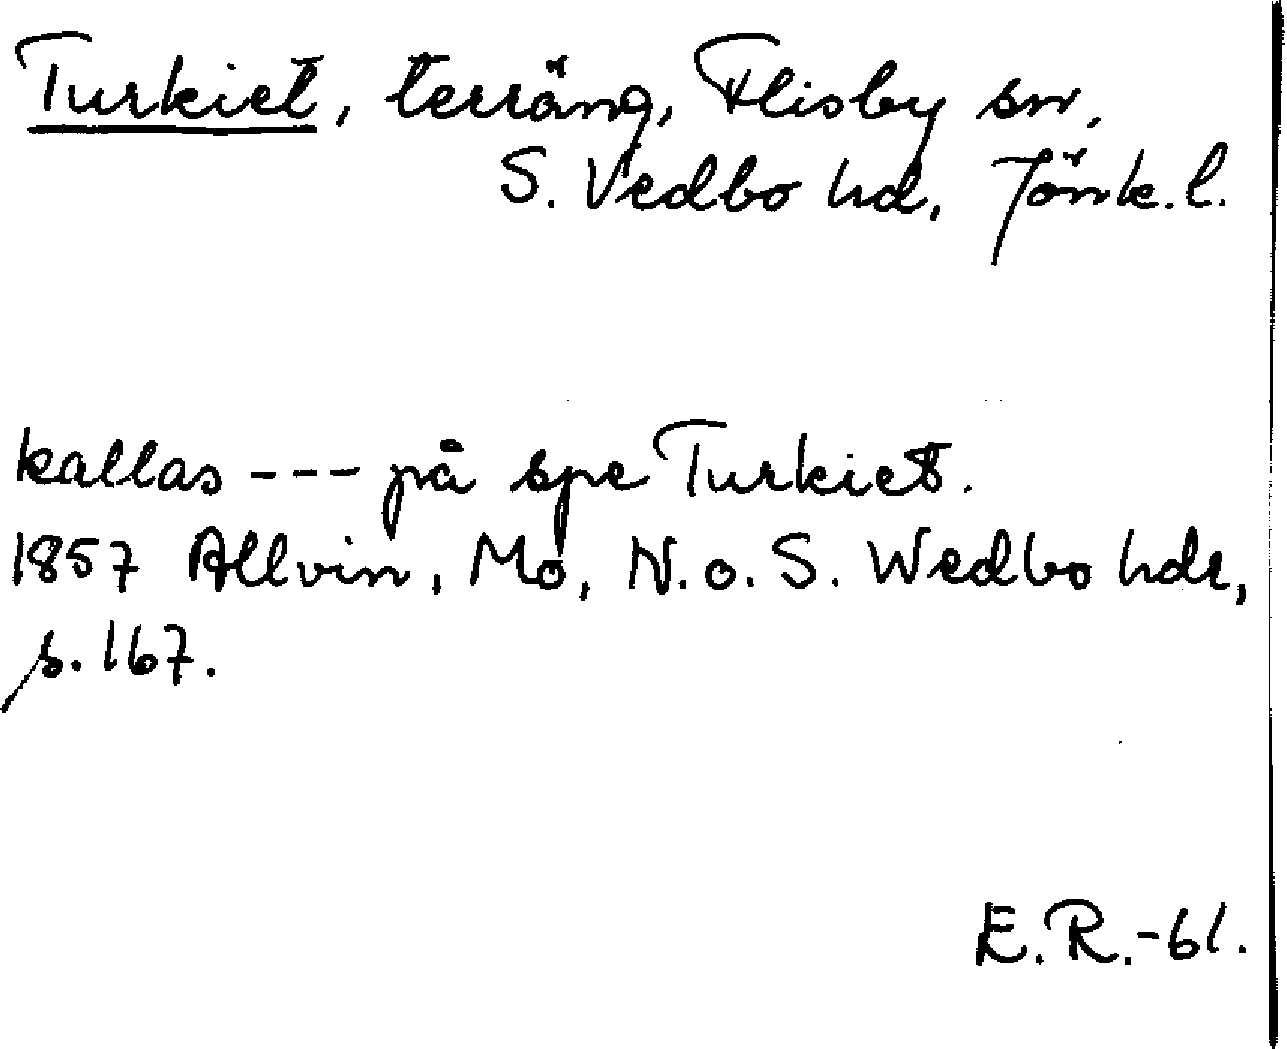 Turkiet, terräng, Flisby sn,
S. Vedbo hd, Jönk.l.
kallas --- på spe Turkiet.
1857 Allvin, Mö, N.o.S. Wedbo hdr,
s. 167.
E.R.-61.